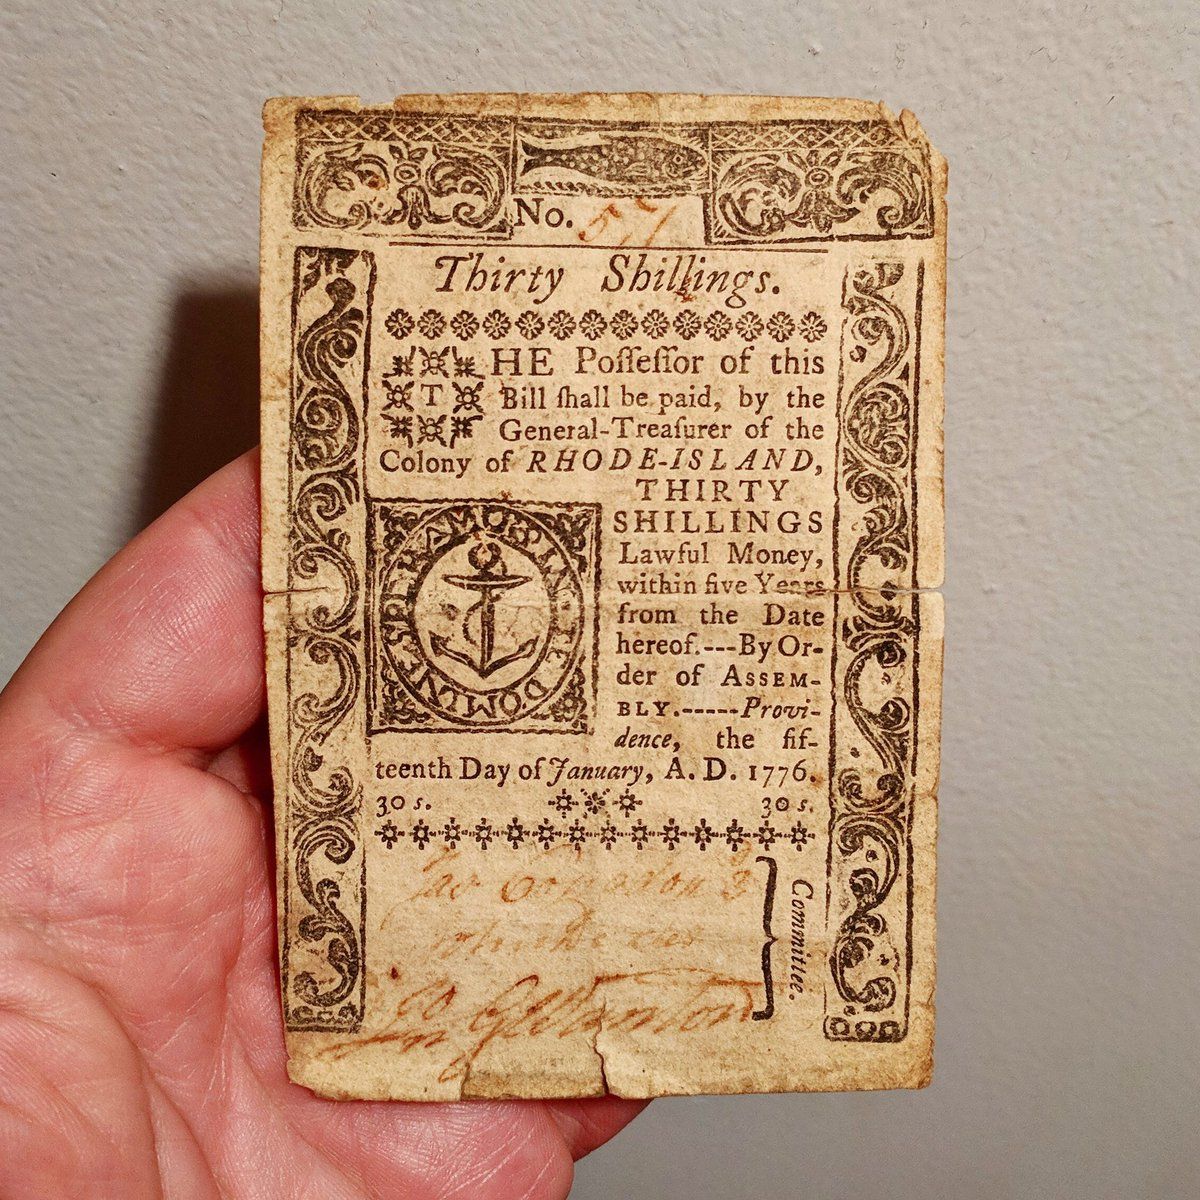 No. 571
Thirty Shillings.
THE Poſſeſſor of this
Bill ſhall be paid, by the
General-Treaſurer of the
Colony of RHODE-ISLAND,
THIRTY
SHILLINGS
Lawful Money,
within five Years
from the Date
hereof.---By Or-
der of ASSEM-
BLY.-----Provi-
dence, the fif-
teenth Day of January, A. D. 1776.
IN TE DOMINE SPERAMUS
30 s. 30 s.
Committee.